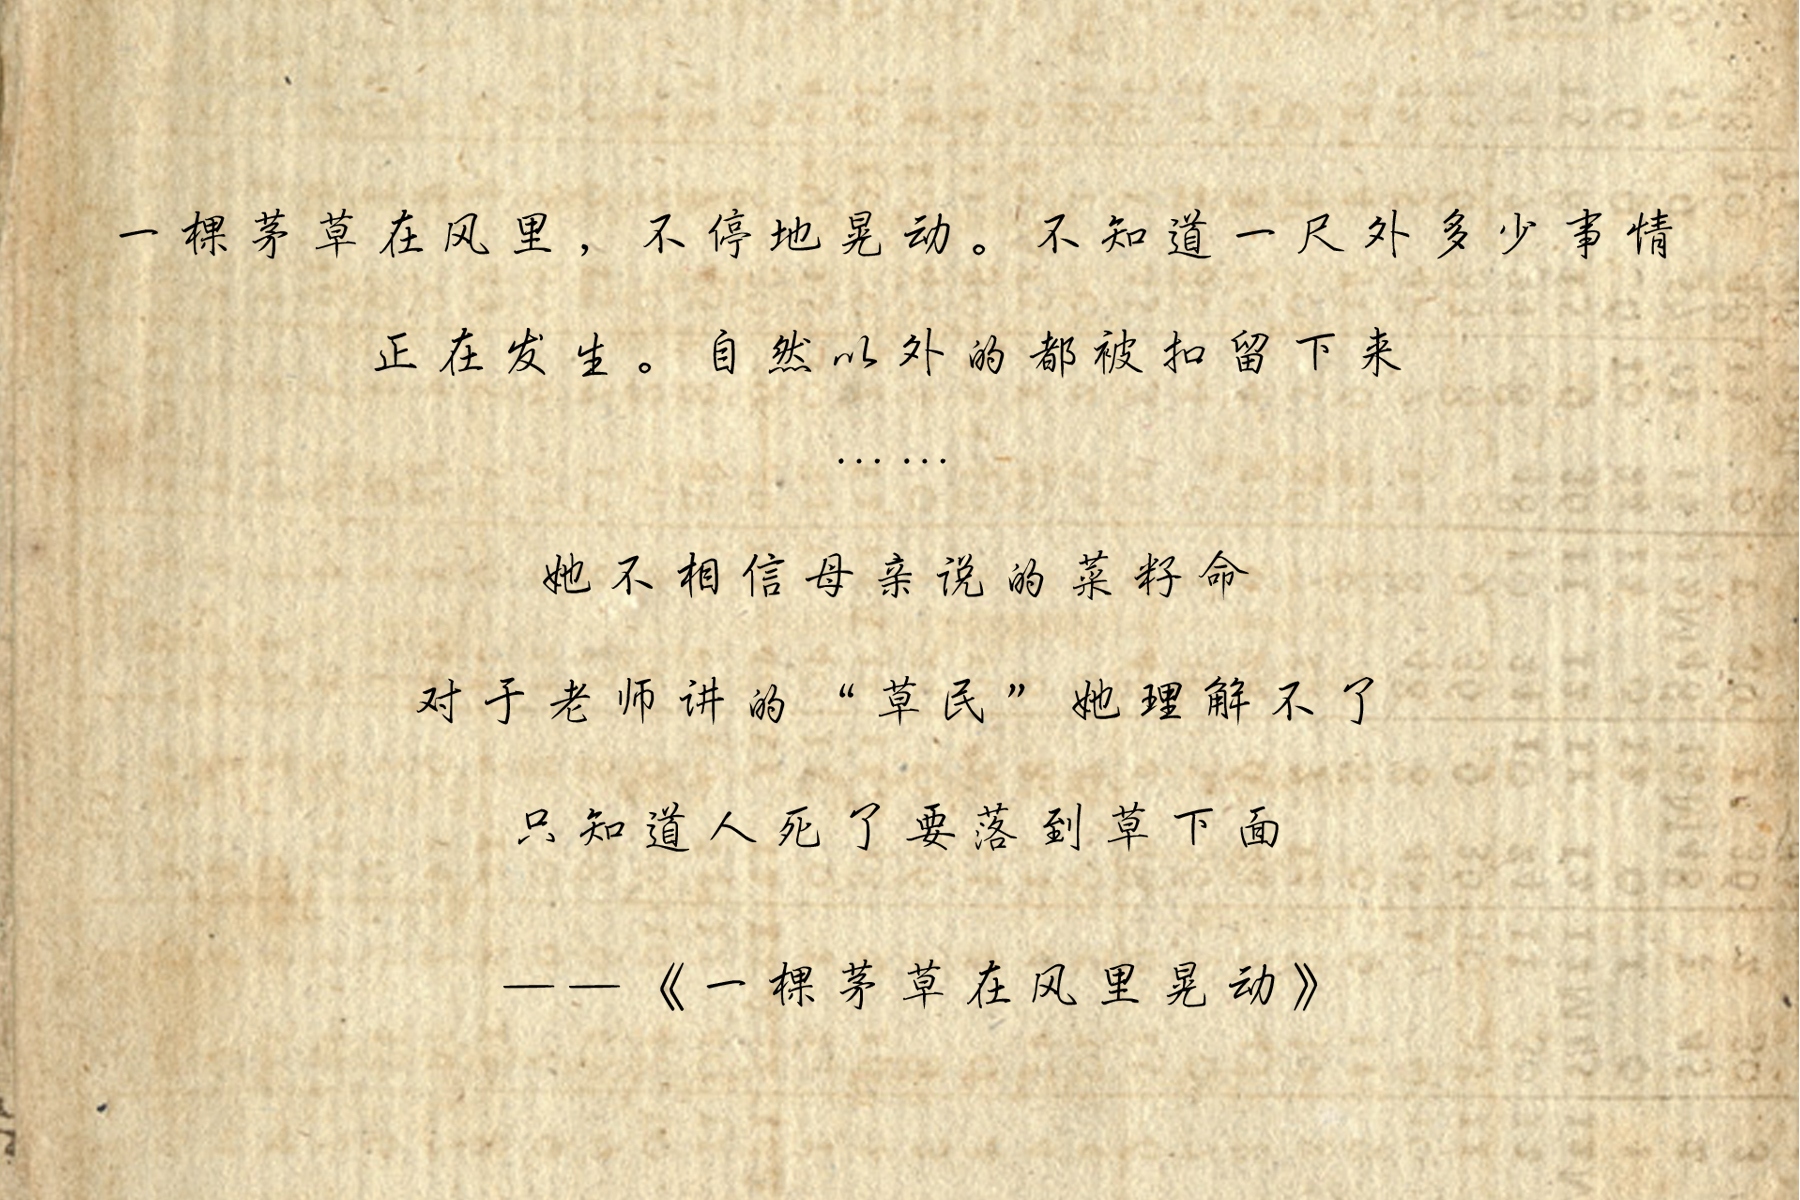 一棵茅草在风里，不停地晃动。不知道一尺外多少事情
正在发生。自然以外的都被扣留下来
……
她不相信母亲说的菜籽命
对于老师讲的“草民”她理解不了
只知道人死了要落到草下面
——《一棵茅草在风里晃动》